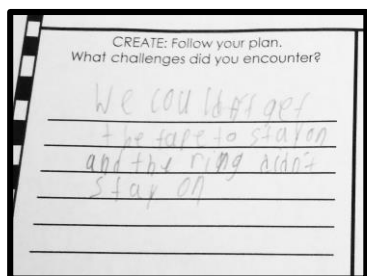 CREATE: Follow your plan.
What challenges did you encounter?
We couldn't get
the tape to stay on
and the ring didn't
stay on